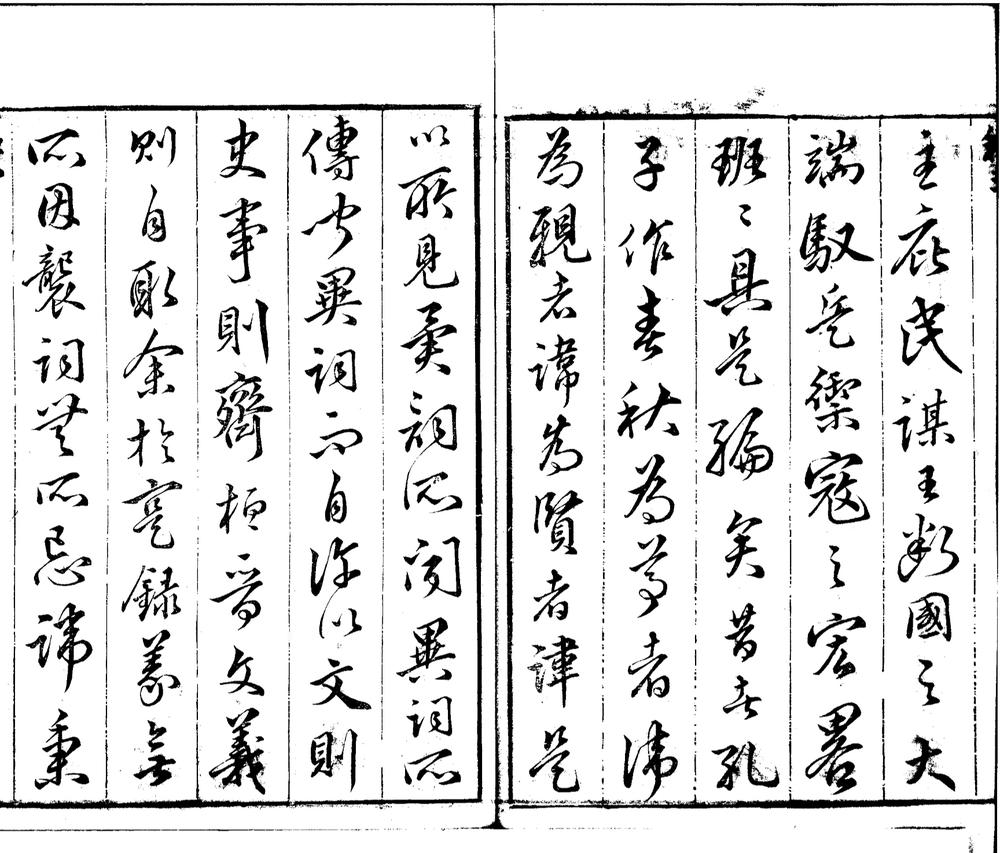 主庇民謀王斷國之大
端馭兵禦寇之宏畧
班〻具是編矣昔者孔
子作春秋為尊者諱
為親者諱為賢者諱是
以所見異詞所聞異詞所
傳聞異詞而自許以文則
史事則齊桓晉文義
則自取余於是錄義無
所因襲詞無所忌諱秉